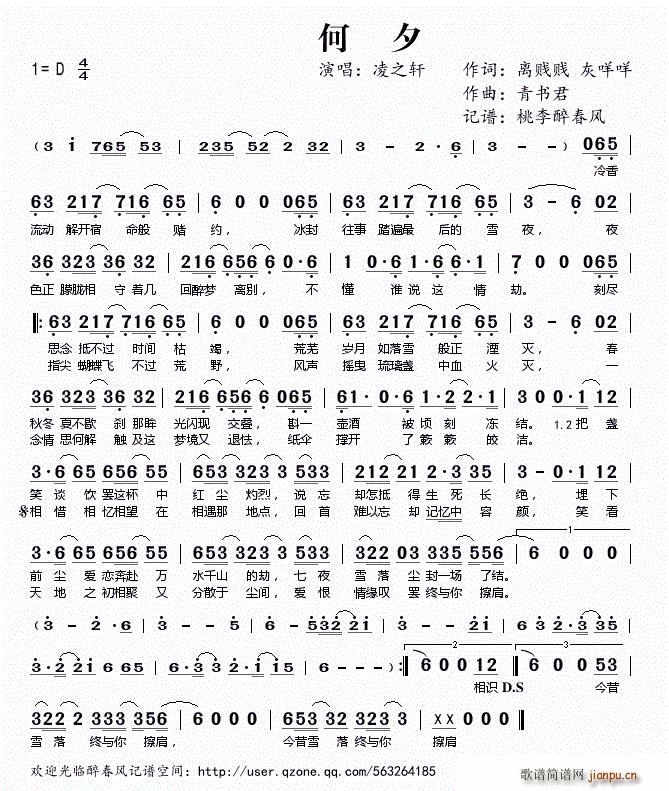 何 夕
1= D 4/4 演唱：凌之轩 作词：离贱贱 灰咩咩
作曲：青书君
记谱：桃李醉春风
( 3 i 765 53 | 235 52 2 32 | 3 - 2 · 6 | 3 - - - ) 065
冷香
63 217 716 65 | 6 0 0 065 | 63 217 716 65 | 3 - · 6 02
流动 解开宿 命般 赌 约， 冰封 往事 踏遍最 后的 雪 夜， 夜
36 323 36 32 | 216 656 60 · 6 | 1 06 · 16 6 · 1 | 7 0 0 065
色正 朦胧相 守 着几 回醉梦 离别， 不 懂 谁 说 这 情 劫。 刻尽
63 217 716 65 | 6 0 0 065 | 63 217 716 65 | 3 - 6 02
思念 抵不过 时间 枯 竭， 荒芜 岁月 如落雪 般正 湮 灭， 春
指尖 蝴蝶飞 不过 荒 野， 风声 摇曳 琉璃盏 中血 火 灭， 一
36 323 36 32 | 216 656 6065 | 61 · 06 2 16 · 1 | 3 00 · 1 12
秋冬 夏不歇 刹 那眸 光闪现 交叠， 斟一 壶酒 被 顷 刻 冻 结。 1.2.把 盏
念情 思何解 触 及这 梦境又 退怯， 纸伞 撑开 了 簌 簌 的 皎 洁。
3 · 6 65 656 55 | 653 323 3 533 | 212 21 2 · 3 35 | 3 - 0 · 1 12
笑 谈 饮 罢这杯 中 红 尘 灼烈， 说 忘 却怎抵 得 生 死 长 绝， 埋 下
相 惜 相 忆相望 在 相遇那 地点， 回 首 难以忘 却 记忆中 容 颜， 笑 看
3 · 6 65 656 55 | 653 323 3 533 | 322 03 335 556 | 6 0 0 0 | 1
前 尘 爱 恋奔赴 万 水千山 的劫， 七 夜 雪 落 尘 封一场 了结。
天 地 之 初相聚 又 分散于 尘间， 爱 恨 情缘叹 罢 终与你 擦肩。
相识 D.S 今昔
322 2 333 356 | 6 0 0 0 | 653 32 323 53 | x x 0 0
雪 落 终与你 擦肩， 今昔雪 落 终与你 擦肩
欢迎光临醉春风记谱空间：http://user.qzone.qq.com/563264185
歌谱简谱网
jianpu.cn